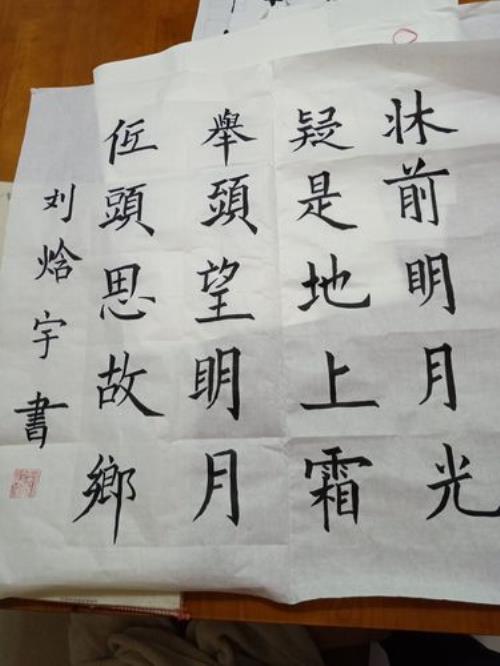 牀前明月光
疑是地上霜
舉頭望明月
低頭思故鄉
刘焓宇書